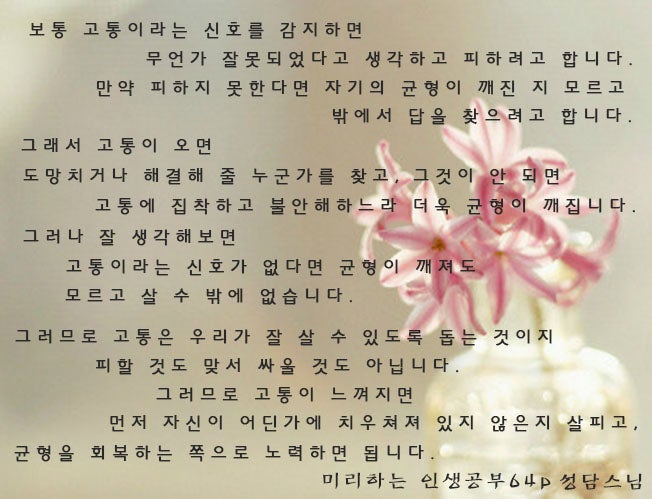 보통 고통이라는 신호를 감지하면
무언가 잘못되었다고 생각하고 피하려고 합니다.
만약 피하지 못한다면 자기의 균형이 깨진 지 모르고
밖에서 답을 찾으려고 합니다.
그래서 고통이 오면
도망치거나 해결해 줄 누군가를 찾고, 그것이 안 되면
고통에 집착하고 불안해하느라 더욱 균형이 깨집니다.
그러나 잘 생각해보면
고통이라는 신호가 없다면 균형이 깨져도
모르고 살 수 밖에 없습니다.
그러므로 고통은 우리가 잘 살 수 있도록 돕는 것이지
피할 것도 맞서 싸울 것도 아닙니다.
그러므로 고통이 느껴지면
먼저 자신이 어딘가에 치우쳐져 있지 않은지 살피고,
균형을 회복하는 쪽으로 노력하면 됩니다.
미리하는 인생공부64p 성담스님